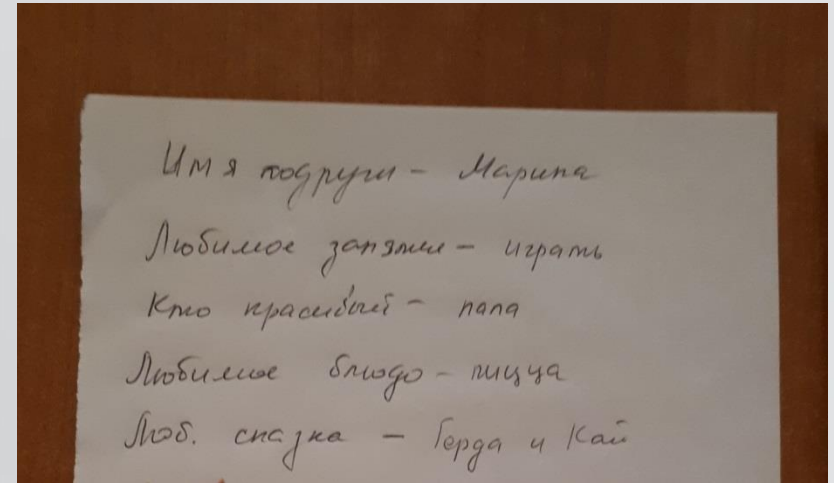 Имя подруги - Марина
Любимое занятие - играть
Кто красивый - папа
Любимое блюдо - пицца
Люб. сказка - Герда и Кай